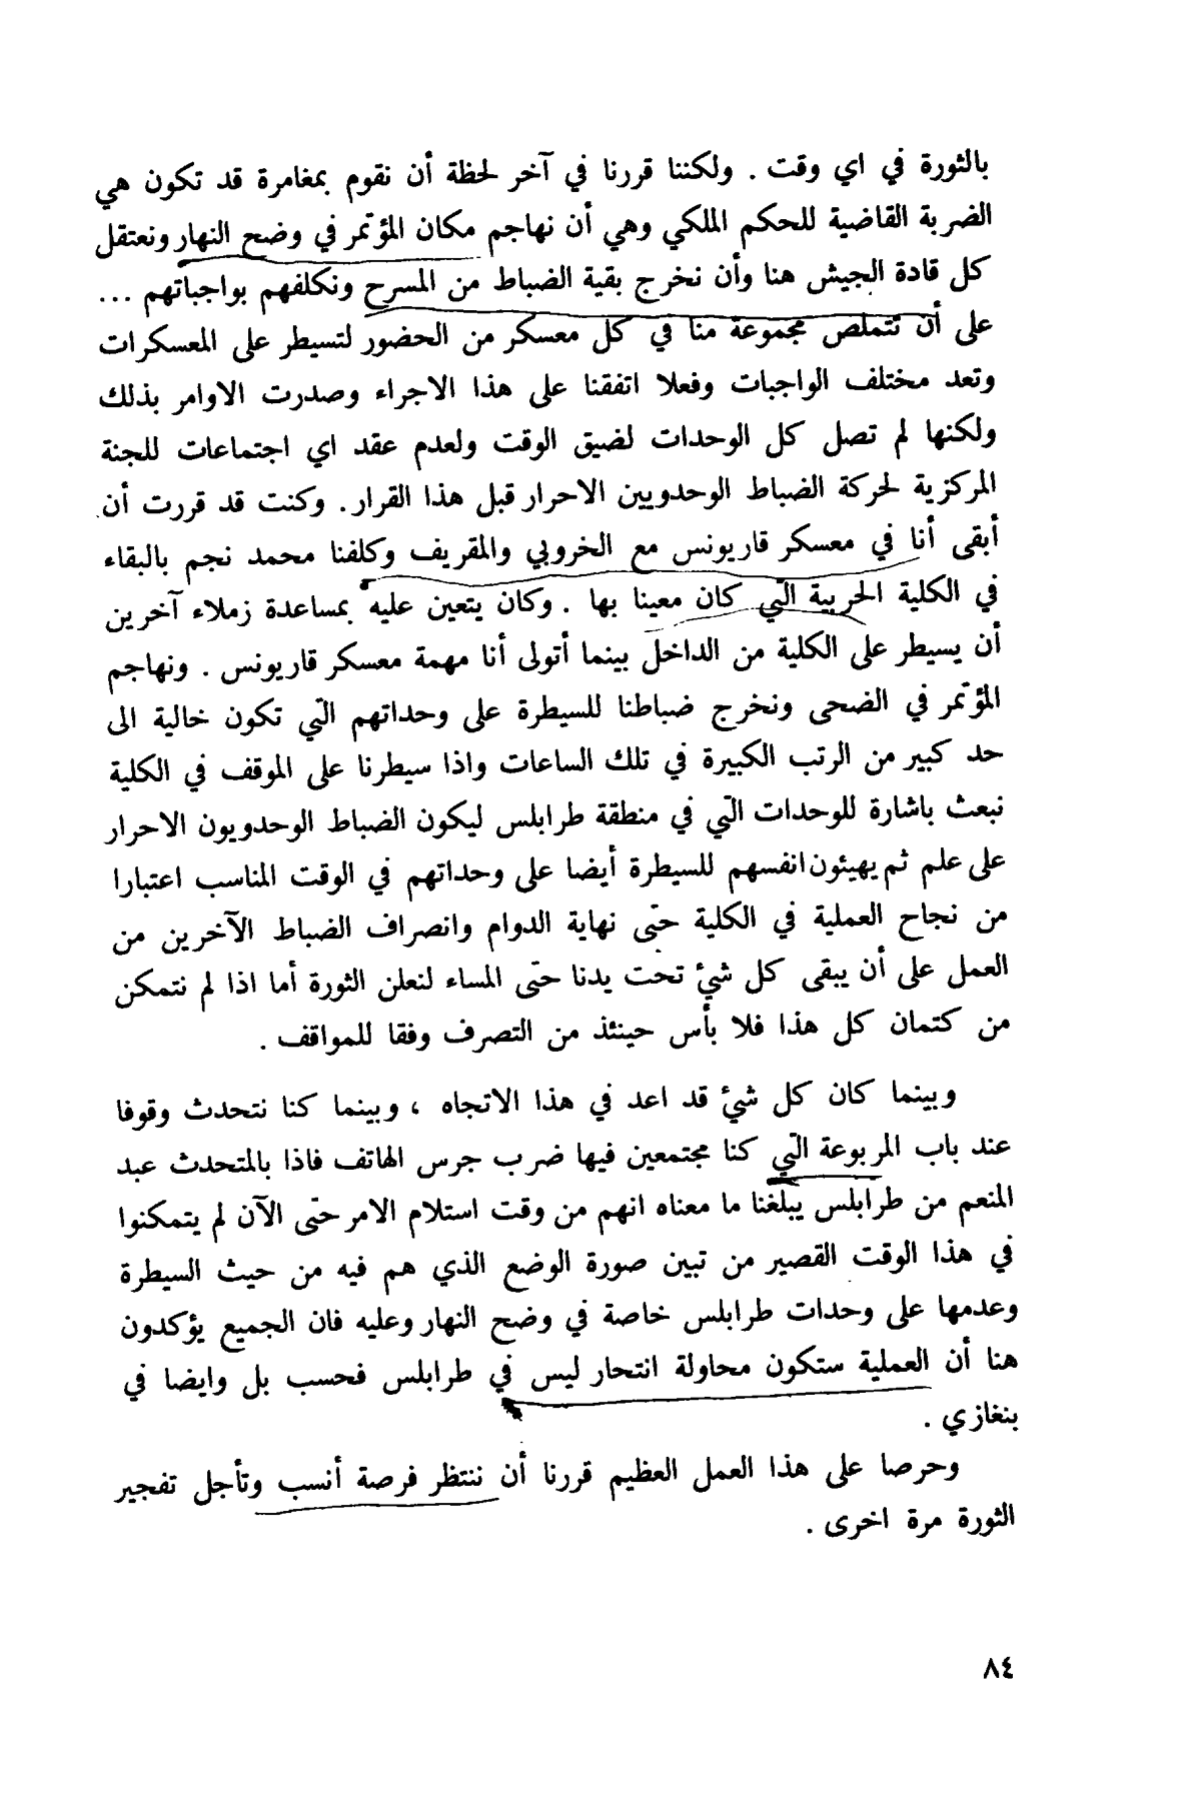 بالثورة في اي وقت . ولكننا قررنا في آخر لحظة أن نقوم بمغامرة قد تكون هي
الضربة القاضية للحكم الملكي وهي أن نهاجم مكان المؤتمر في وضح النهار ونعتقل
كل قادة الجيش هنا وأن نخرج بقية الضباط من المسرح ونكلفهم بواجباتهم ...
على أن تتملص مجموعة منا في كل معسكر من الحضور لتسيطر على المعسكرات
وتعد مختلف الواجبات وفعلا اتفقنا على هذا الاجراء وصدرت الاوامر بذلك
ولكنها لم تصل كل الوحدات لضيق الوقت ولعدم عقد اي اجتماعات للجنة
المركزية لحركة الضباط الوحدويين الاحرار قبل هذا القرار . وكنت قد قررت أن
أبقى أنا في معسكر قاريونس مع الخروبي والمقريف وكلفنا محمد نجم بالبقاء
في الكلية الحربية التي كان معينا بها . وكان يتعين عليه بمساعدة زملاء آخرين
أن يسيطر على الكلية من الداخل بينما أتولى أنا مهمة معسكر قاريونس . ونهاجم
المؤتمر في الضحى ونخرج ضباطنا للسيطرة على وحداتهم التي تكون خالية الى
حد كبير من الرتب الكبيرة في تلك الساعات واذا سيطرنا على الموقف في الكلية
نبعث باشارة للوحدات التي في منطقة طرابلس ليكون الضباط الوحدويون الاحرار
على علم ثم يهيئون انفسهم للسيطرة أيضا على وحداتهم في الوقت المناسب اعتبارا
من نجاح العملية في الكلية حتى نهاية الدوام وانصراف الضباط الآخرين من
العمل على أن يبقى كل شئ تحت يدنا حتى المساء لنعلن الثورة أما اذا لم نتمكن
من كتمان كل هذا فلا بأس حينئذ من التصرف وفقا للمواقف .
وبينما كان كل شئ قد اعد في هذا الاتجاه ، وبينما كنا نتحدث وقوفا
عند باب المربوعة التي كنا مجتمعين فيها ضرب جرس الهاتف فاذا بالمتحدث عبد
المنعم من طرابلس يبلغنا ما معناه انهم من وقت استلام الامر حتى الآن لم يتمكنوا
في هذا الوقت القصير من تبين صورة الوضع الذي هم فيه من حيث السيطرة
وعدمها على وحدات طرابلس خاصة في وضح النهار وعليه فان الجميع يؤكدون
هنا أن العملية ستكون محاولة انتحار ليس في طرابلس فحسب بل وايضا في
بنغازي .
وحرصا على هذا العمل العظيم قررنا أن ننتظر فرصة أنسب وتأجل تفجير
الثورة مرة اخرى .
٨٤